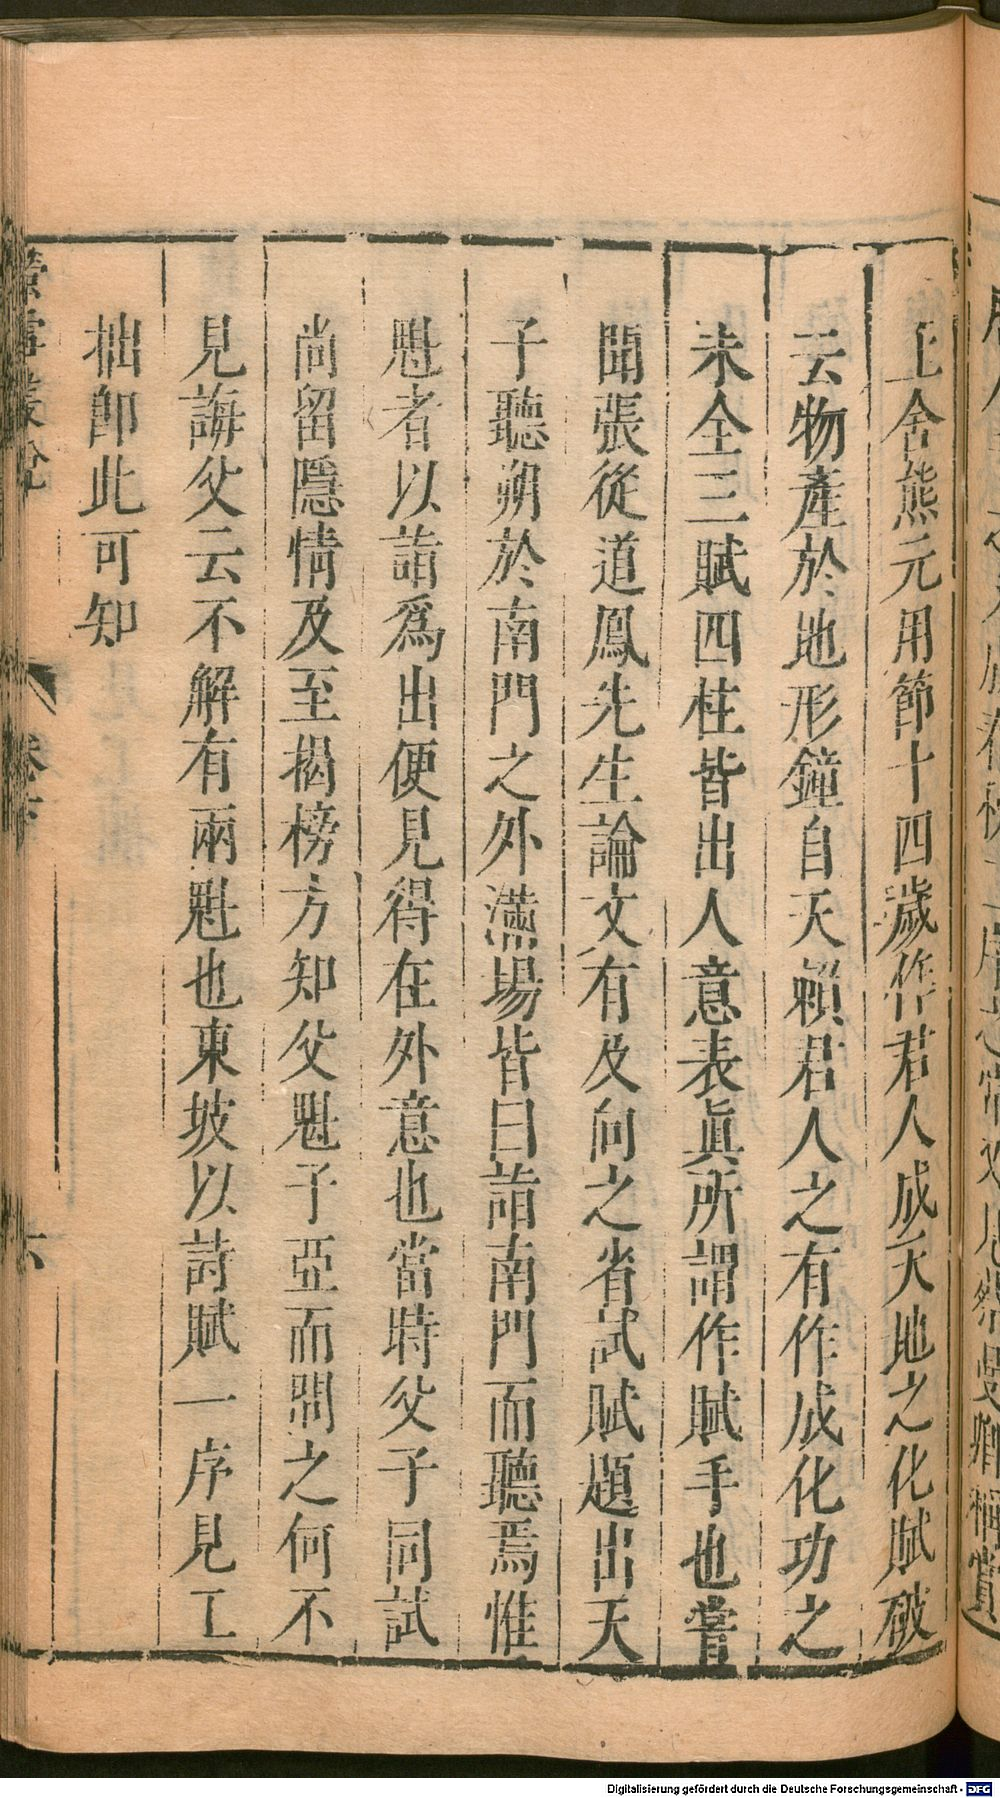 上舍熊元用節十四歲作君人成天地之化賦破
云物產於地形鐘自天賴君人之有作成化功之
未全三賦四柱皆出人意表眞所謂作賦手也嘗
聞張從道鳳先生論文有及向之省試賦題出天
子聽朔於南門之外滿場皆曰詣南門而聽焉惟
魁者以詣爲出便見得在外意也當時父子同試
尚留隱情及至揭榜方知父魁子亞而問之何不
見誨父云不解有兩魁也東坡以詩賦一序見工
拙卽此可知
螢雪叢說 卷下 六
Digitalisierung gefördert durch die Deutsche Forschungsgemeinschaft - DFG